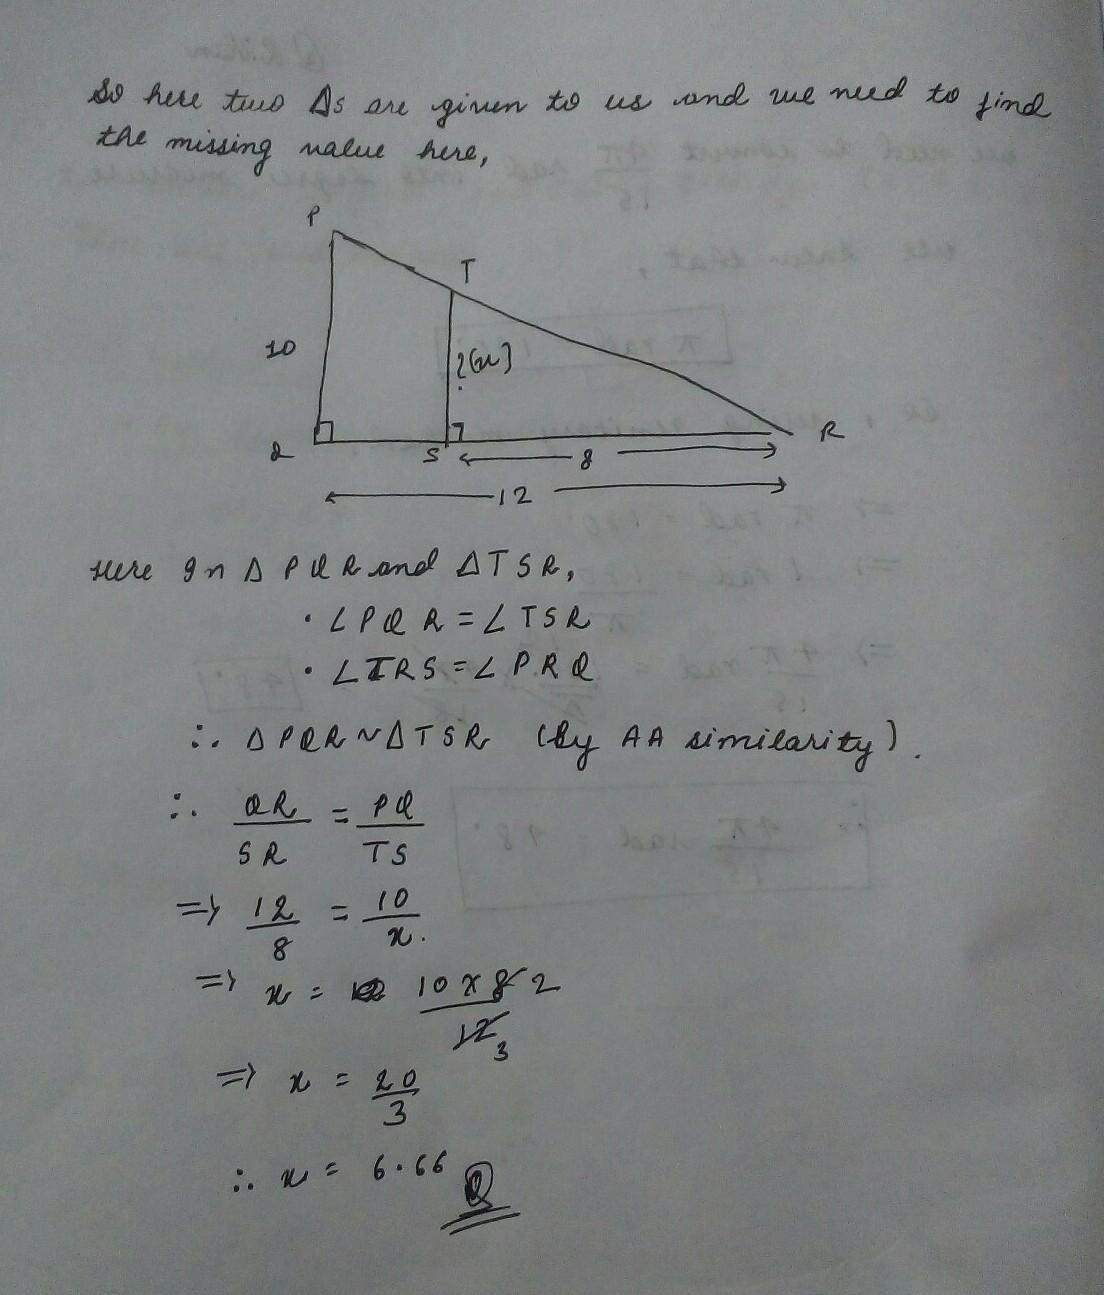 So here two Δs are given to us and we need to find
the missing value here,
P
T
10
?(x)
Q
S
R
8
12
Here In Δ PQR and ΔTSR,
• ∠PQR = ∠TSR
• ∠TRS = ∠PRQ
∴ ΔPQR ~ ΔTSR (by AA similarity).
∴ QR/SR = PQ/TS
=> 12/8 = 10/x.
=> x = 10 x 8 2/12 3
=> x = 20/3
∴ x = 6.66